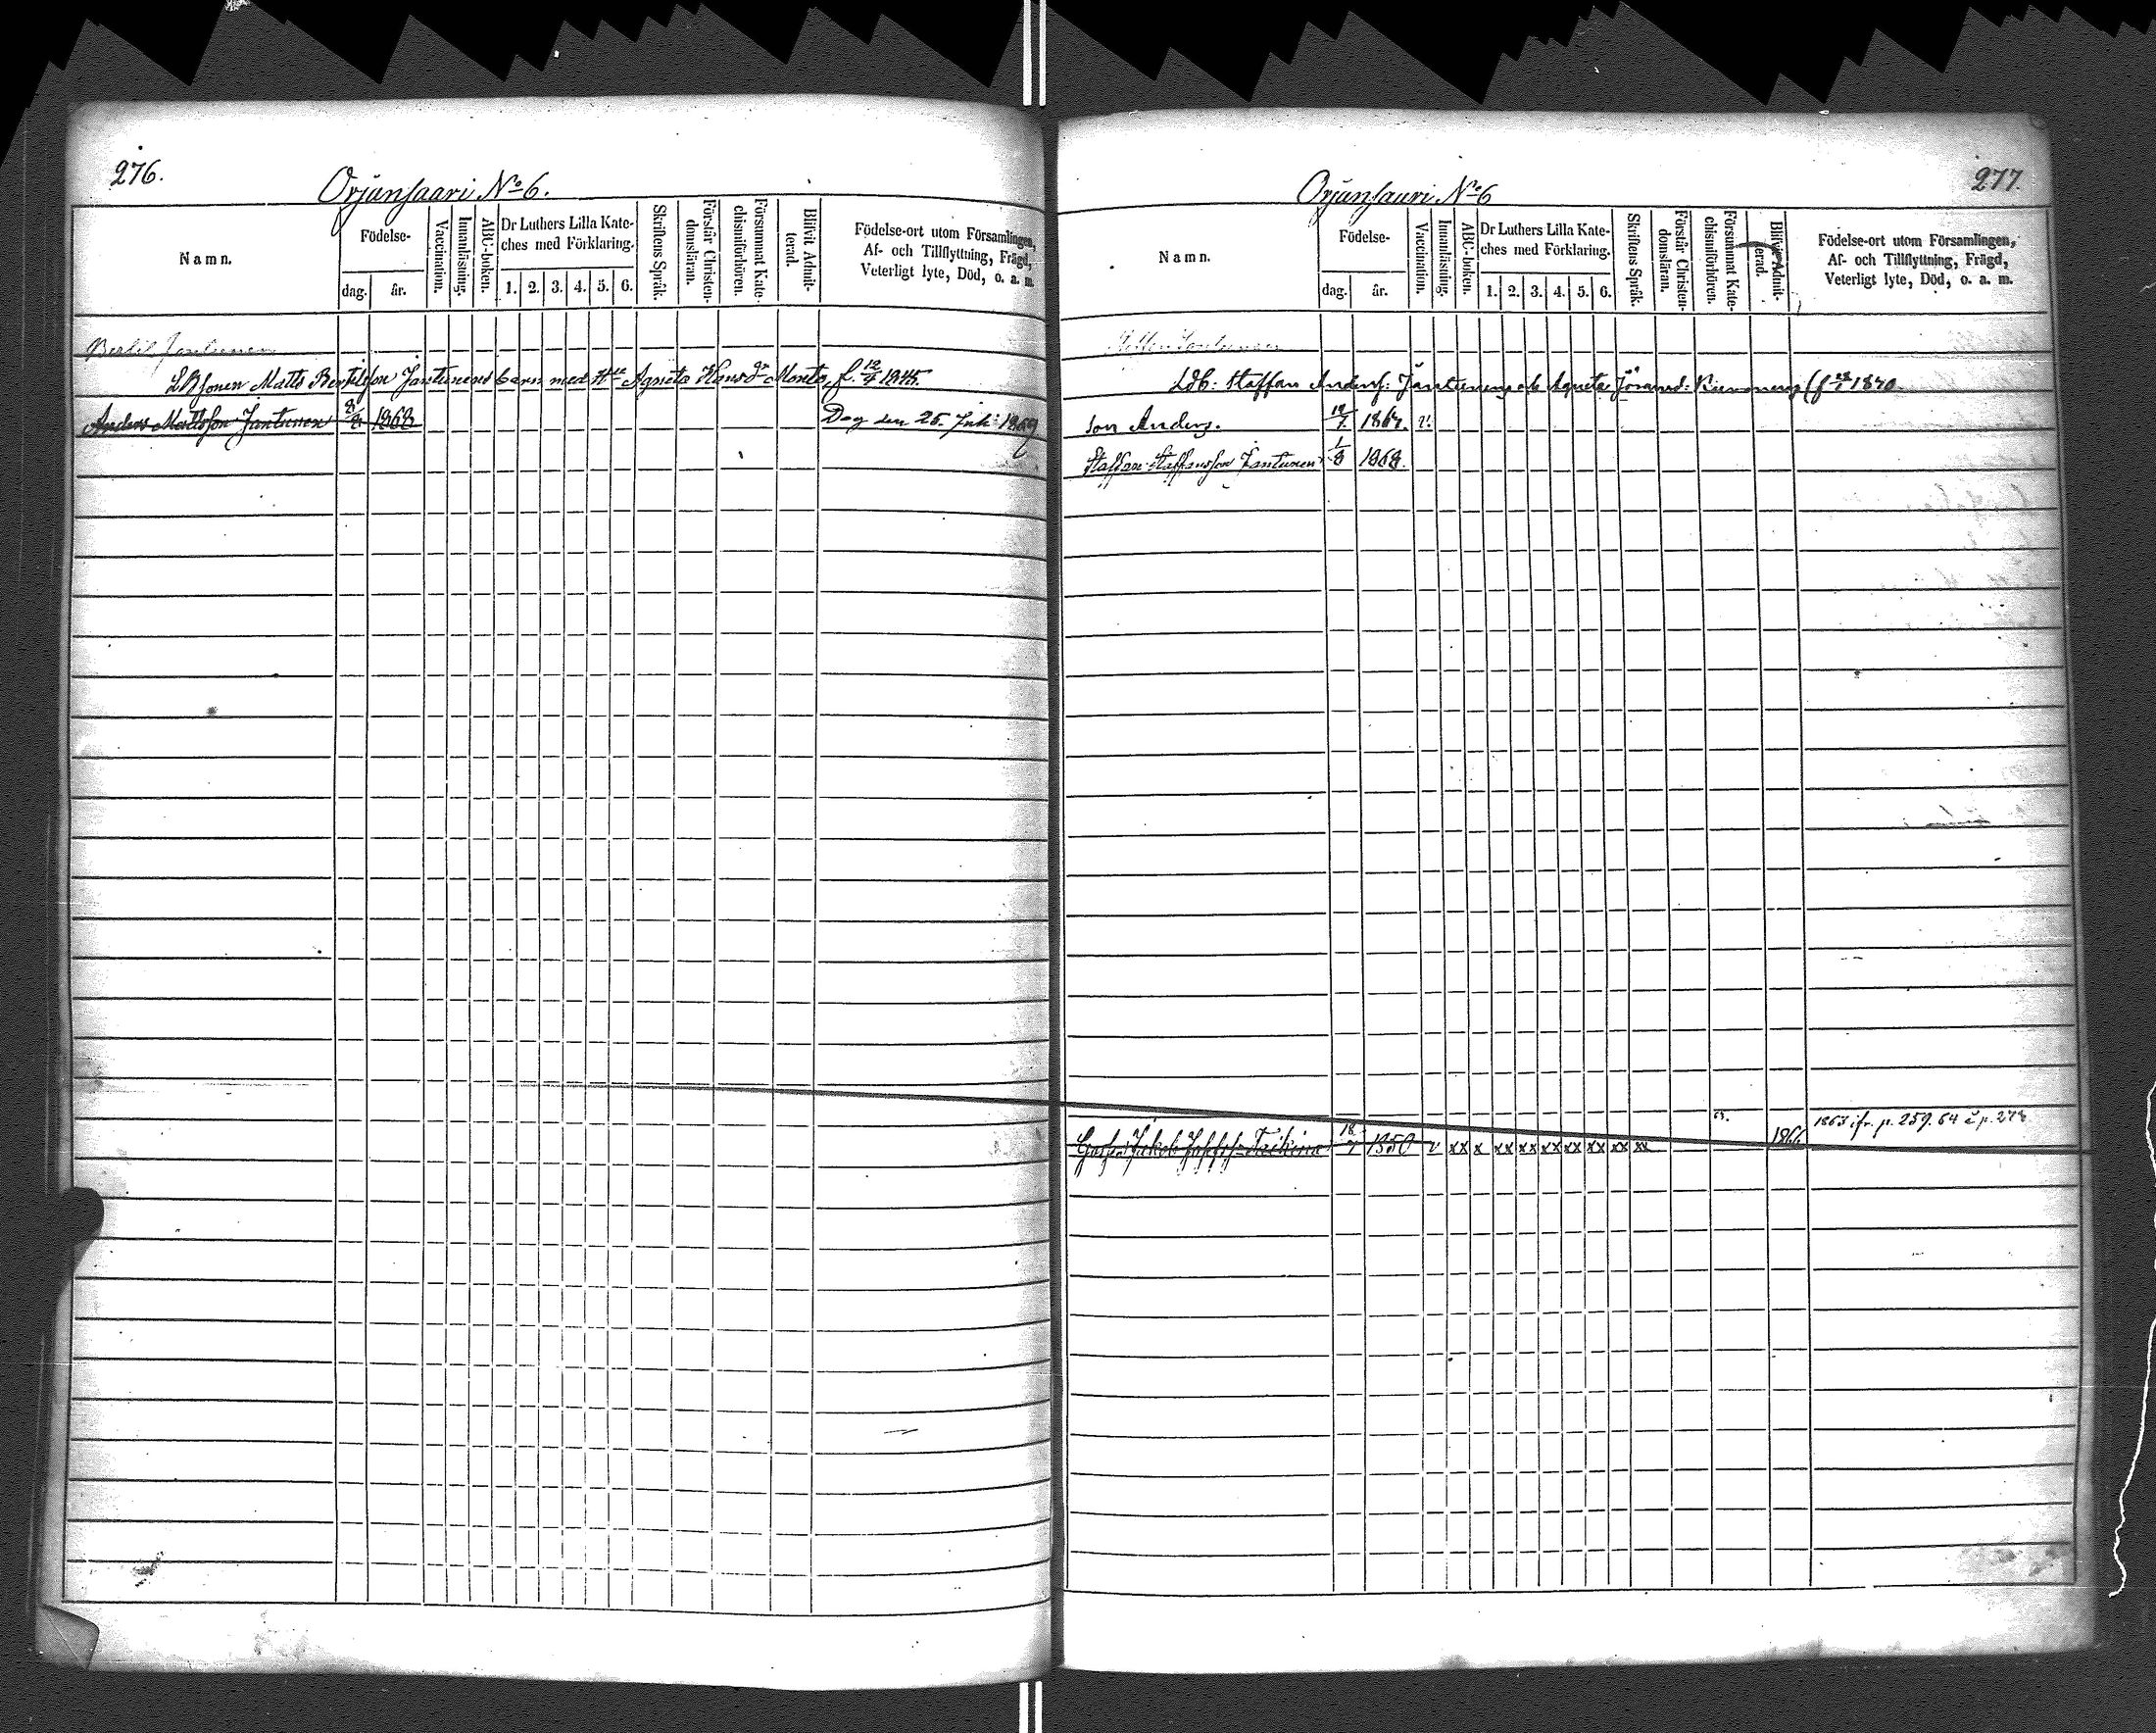 276.
Orjansaari No 6.
Namn.
Födelse-
dag.
år.
Vaccination.
Innanläsning.
ABC-boken.
Dr Luthers Lilla Kate-
ches med Förklaring.
1. 2. 3. 4. 5. 6.
Skriftens Språk.
Förstår Christen-
domsläran.
Försummat Kate-
chismiförhören.
Blifvit Admit-
terad.
Födelse-ort utom Församlingen,
Af- och Tillflyttning, Frägd,
Veterligt lyte, Död, o. a. m.
Bertil Jantunen
Matts Bertilsson Jantunens barn med Agneta Hansdr f. 12/4 1845.
Anders Mattsson Jantunen 1868 Dog den 25. Juli 1869
277.
Orjansaari No 6
Namn.
Födelse-
dag.
år.
Vaccination.
Innanläsning.
ABC-boken.
Dr Luthers Lilla Kate-
ches med Förklaring.
1. 2. 3. 4. 5. 6.
Skriftens Språk.
Förstår Christen-
domsläran.
Försummat Kate-
chismiförhören.
Blifvit Admit-
terad.
Födelse-ort utom Församlingen,
Af- och Tillflyttning, Frägd,
Veterligt lyte, Död, o. a. m.
Staffan Anders: Jantunens och Agneta 1840
Son Anders. 1867. v.
Staffan Staffansson Jantunen 1/8 1868.
1863 ifr. p. 259. 64
Jakob 18/7 1850 v xx x xx xx xx xx xx xx xx 1866